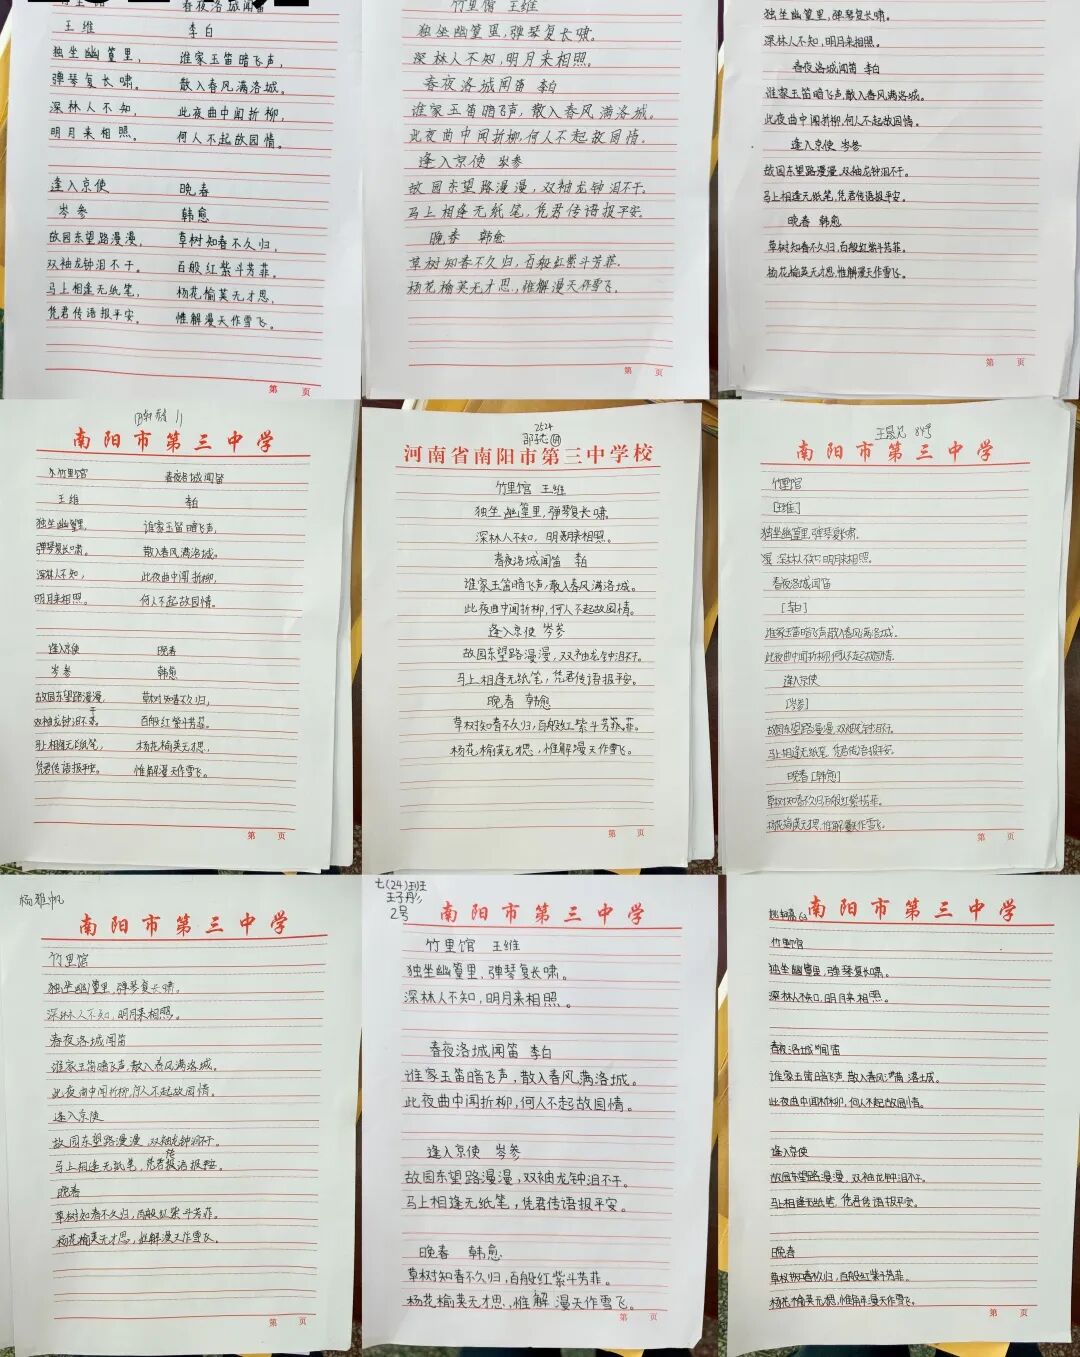 王维 李白
独坐幽篁里, 谁家玉笛暗飞声,
弹琴复长啸。 散入春风满洛城。
深林人不知, 此夜曲中闻折柳,
明月来相照。 何人不起故园情。
逢入京使 晚春
岑参 韩愈
故园东望路漫漫, 草树知春不久归,
双袖龙钟泪不干。 百般红紫斗芳菲。
马上相逢无纸笔, 杨花榆荚无才思,
凭君传语报平安。 惟解漫天作雪飞。
第 页
竹里馆 王维
独坐幽篁里,弹琴复长啸。
深林人不知,明月来相照。
春夜洛城闻笛 李白
谁家玉笛暗飞声,散入春风满洛城。
此夜曲中闻折柳,何人不起故园情。
逢入京使 岑参
故园东望路漫漫,双袖龙钟泪不干。
马上相逢无纸笔,凭君传语报平安。
晚春 韩愈
草树知春不久归,百般红紫斗芳菲。
杨花榆荚无才思,惟解漫天作雪飞。
第 页
独坐幽篁里,弹琴复长啸。
深林人不知,明月来相照。
春夜洛城闻笛 李白
谁家玉笛暗飞声,散入春风满洛城。
此夜曲中闻折柳,何人不起故园情。
逢入京使 岑参
故园东望路漫漫,双袖龙钟泪不干。
马上相逢无纸笔,凭君传语报平安。
晚春 韩愈
草树知春不久归,百般红紫斗芳菲。
杨花榆荚无才思,惟解漫天作雪飞。
第 页
11
南阳市第三中学
竹里馆 春夜洛城闻笛
王维 李白
独坐幽篁里, 谁家玉笛暗飞声,
弹琴复长啸。 散入春风满洛城。
深林人不知, 此夜曲中闻折柳,
明月来相照。 何人不起故园情。
逢入京使 晚春
岑参 韩愈
故园东望路漫漫, 草树知春不久归,
双袖龙钟泪不干。 百般红紫斗芳菲。
马上相逢无纸笔, 杨花榆荚无才思,
凭君传语报平安。 惟解漫天作雪飞。
第 页
2524
河南省南阳市第三中学校
竹里馆 王维
独坐幽篁里,弹琴复长啸。
深林人不知,明月来相照。
春夜洛城闻笛 李白
谁家玉笛暗飞声,散入春风满洛城。
此夜曲中闻折柳,何人不起故园情。
逢入京使 岑参
故园东望路漫漫,双袖龙钟泪不干。
马上相逢无纸笔,凭君传语报平安。
晚春 韩愈
草树知春不久归,百般红紫斗芳菲。
杨花榆荚无才思,惟解漫天作雪飞。
第 页
84号
南阳市第三中学
竹里馆
[王维]
独坐幽篁里,弹琴复长啸。
深林人不知,明月来相照。
春夜洛城闻笛
[李白]
谁家玉笛暗飞声,散入春风满洛城。
此夜曲中闻折柳,何人不起故园情。
逢入京使
[岑参]
故园东望路漫漫,双袖龙钟泪不干。
马上相逢无纸笔,凭君传语报平安。
晚春[韩愈]
草树知春不久归,百般红紫斗芳菲。
杨花榆荚无才思,惟解漫天作雪飞。
第 页
杨雅帆
南阳市第三中学
竹里馆
独坐幽篁里,弹琴复长啸,
深林人不知,明月来相照。
春夜洛城闻笛
谁家玉笛暗飞声,散入春风满洛城。
此夜曲中闻折柳,何人不起故园情。
逢入京使
故园东望路漫漫 双袖龙钟泪不干。
马上相逢无纸笔,凭君传语报平安。
晚春
草树知春不久归,百般红紫斗芳菲。
杨花榆荚无才思,惟解漫天作雪飞。
第 页
七(24)班
王子彤
2号
南阳市第三中学
竹里馆 王维
独坐幽篁里,弹琴复长啸。
深林人不知,明月来相照。
春夜洛城闻笛 李白
谁家玉笛暗飞声,散入春风满洛城。
此夜曲中闻折柳,何人不起故园情。
逢入京使 岑参
故园东望路漫漫,双袖龙钟泪不干。
马上相逢无纸笔,凭君传语报平安。
晚春 韩愈
草树知春不久归,百般红紫斗芳菲。
杨花榆荚无才思,惟解漫天作雪飞。
第 页
63
南阳市第三中学
竹里馆
独坐幽篁里,弹琴复长啸。
深林人不知,明月来相照。
春夜洛城闻笛
谁家玉笛暗飞声,散入春风满洛城。
此夜曲中闻折柳,何人不起故园情。
逢入京使
故园东望路漫漫,双袖龙钟泪不干。
马上相逢无纸笔,凭君传语报平安。
晚春
草树知春不久归,百般红紫斗芳菲。
杨花榆荚无才思,惟解漫天作雪飞。
第 页